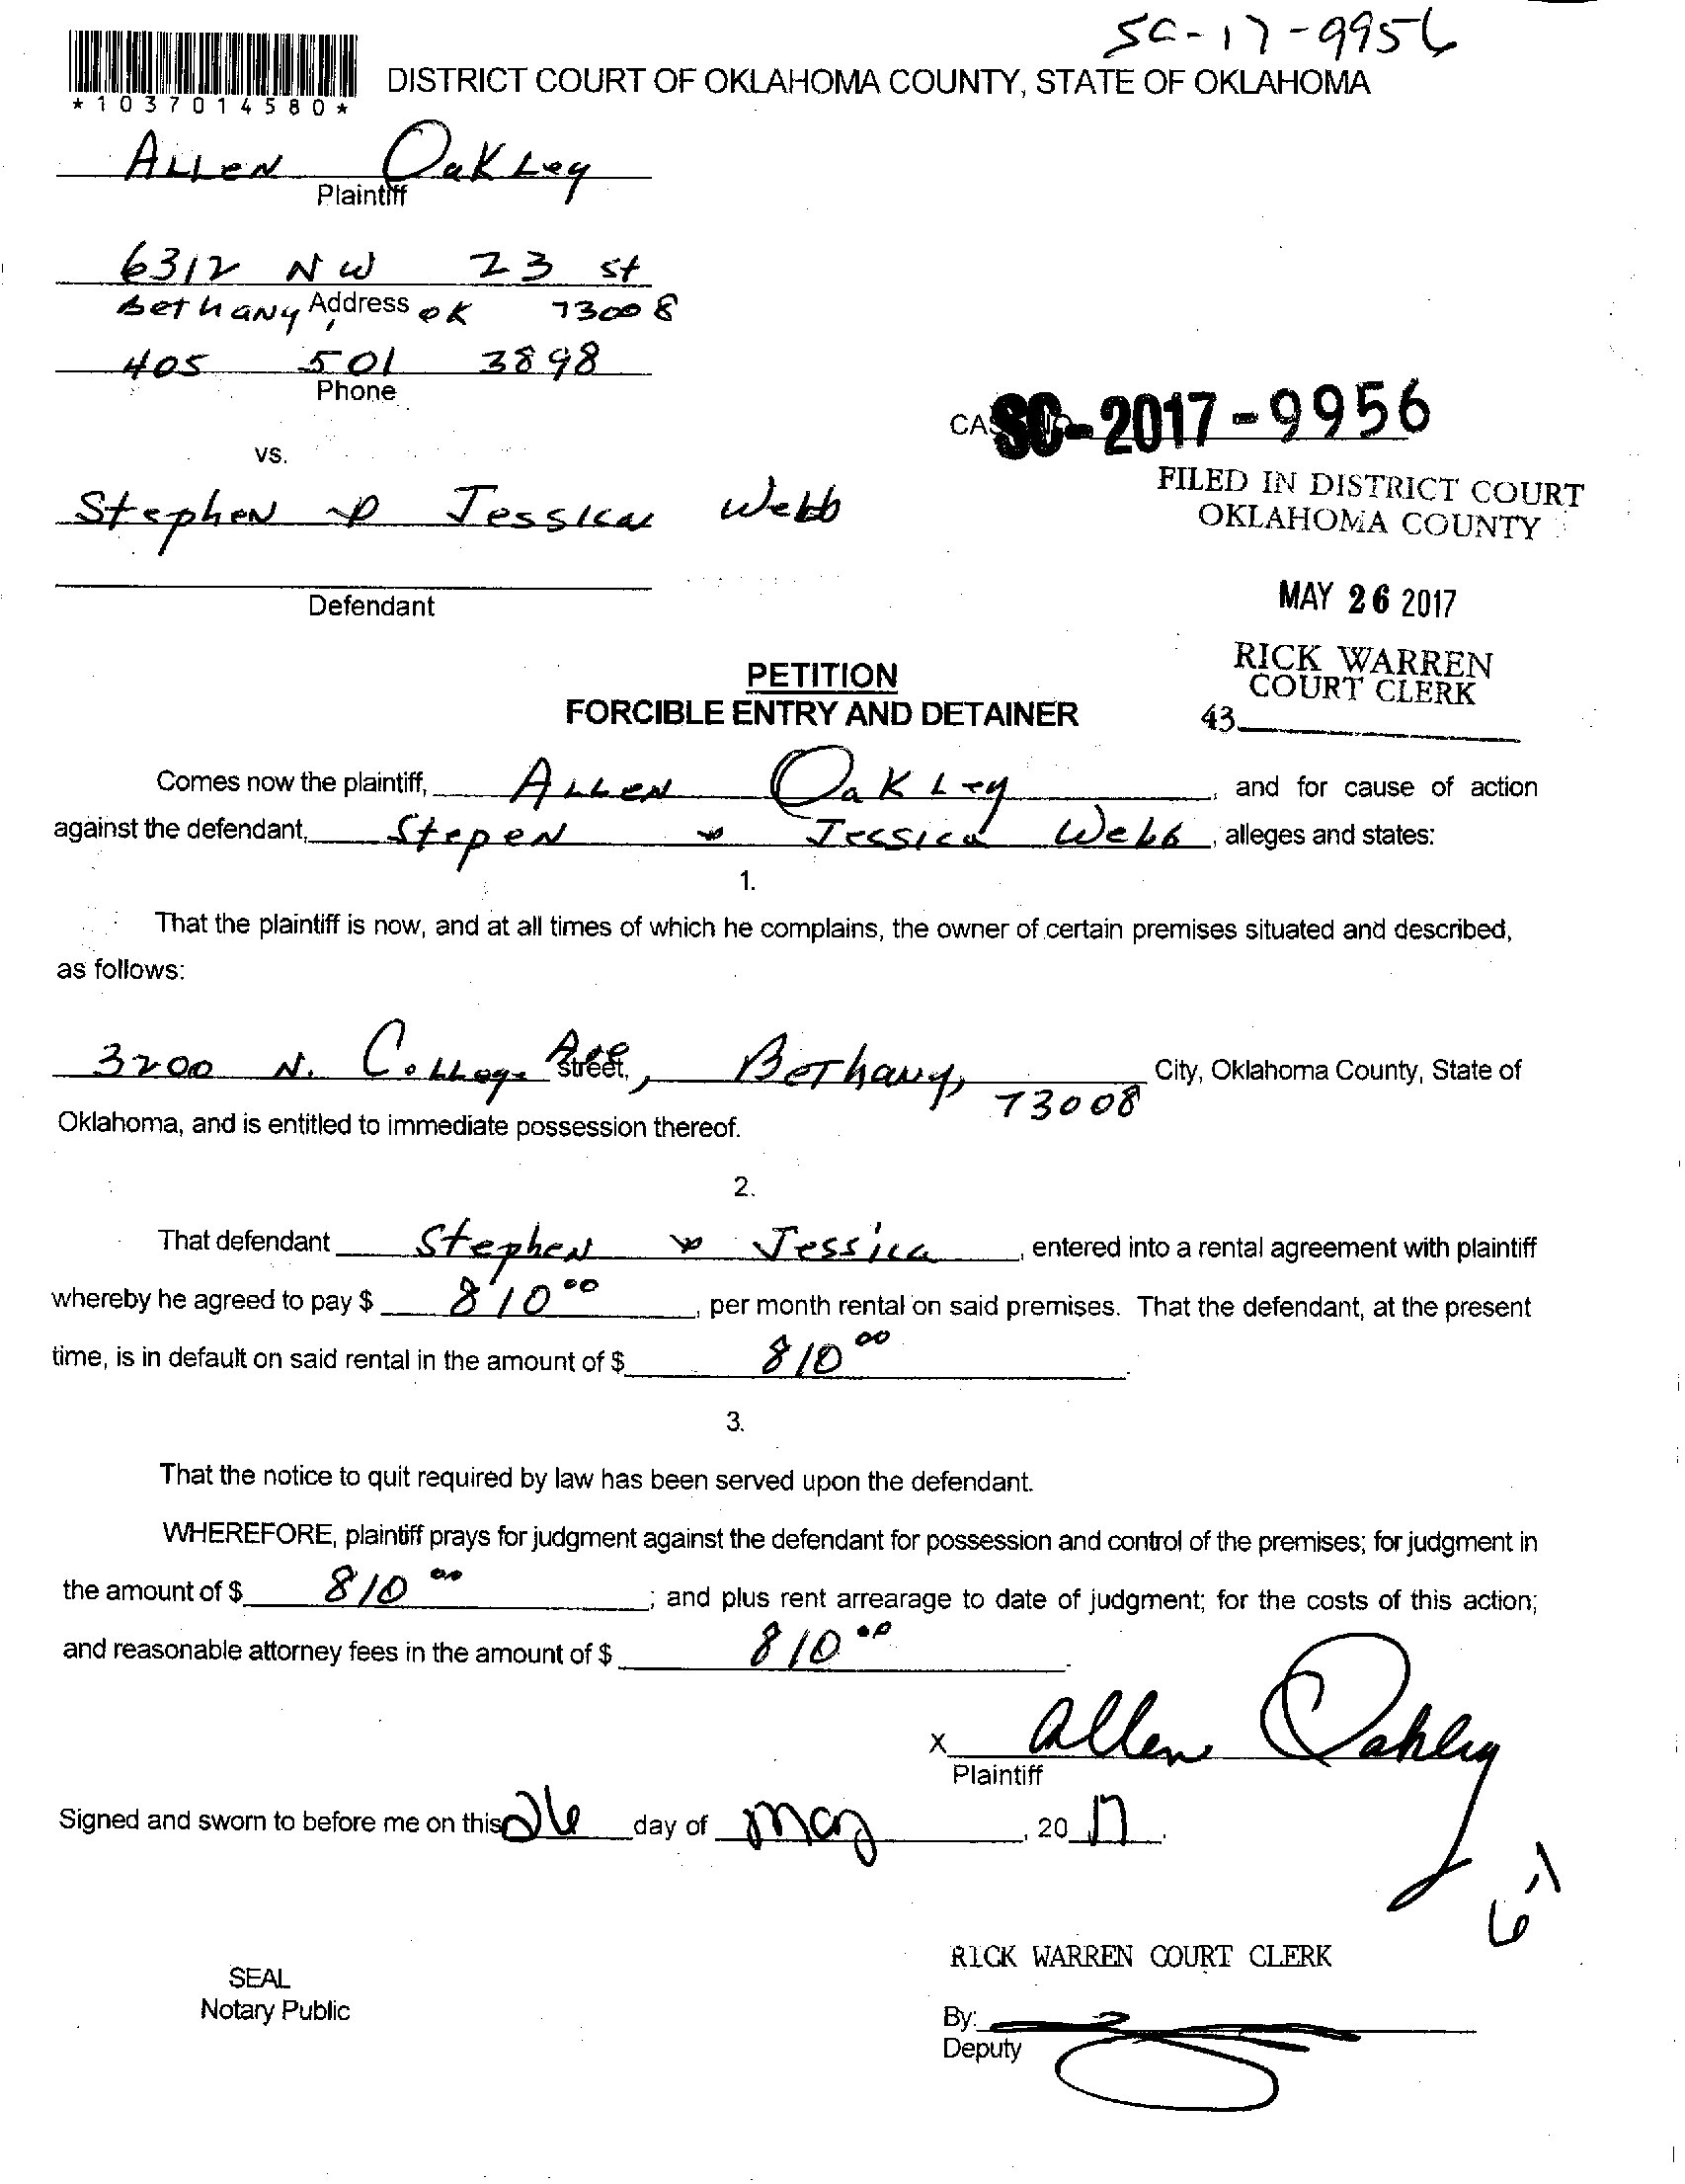 SC-17-9956
DISTRICT COURT OF OKLAHOMA COUNTY, STATE OF OKLAHOMA
*1037014580*
ALLEN OakLey
Plaintiff
6312 NW 23 st
Address
BethaNy, OK 73008
405 501 3898
Phone
SC-2017-9956
vs.
FILED IN DISTRICT COURT
OKLAHOMA COUNTY
StepheN & Jessica Webb
Defendant
MAY 26 2017
RICK WARREN
COURT CLERK
43
PETITION
FORCIBLE ENTRY AND DETAINER
Comes now the plaintiff, ALLEN OakLey, and for cause of action
against the defendant, StepeN & Jessica Webb, alleges and states:
1.
That the plaintiff is now, and at all times of which he complains, the owner of certain premises situated and described,
as follows:
3200 N. CoLLege Ave Street, Bethany, 73008 City, Oklahoma County, State of
Oklahoma, and is entitled to immediate possession thereof.
2.
That defendant StepheN & Jessica, entered into a rental agreement with plaintiff
whereby he agreed to pay $ 810 00, per month rental on said premises. That the defendant, at the present
time, is in default on said rental in the amount of $ 810 00.
3.
That the notice to quit required by law has been served upon the defendant.
WHEREFORE, plaintiff prays for judgment against the defendant for possession and control of the premises; for judgment in
the amount of $ 810 00; and plus rent arrearage to date of judgment; for the costs of this action;
and reasonable attorney fees in the amount of $ 810 00.
X Allen Oakley
Plaintiff
Signed and sworn to before me on this 26 day of may, 20 17.
RICK WARREN COURT CLERK
SEAL
Notary Public
By:
Deputy